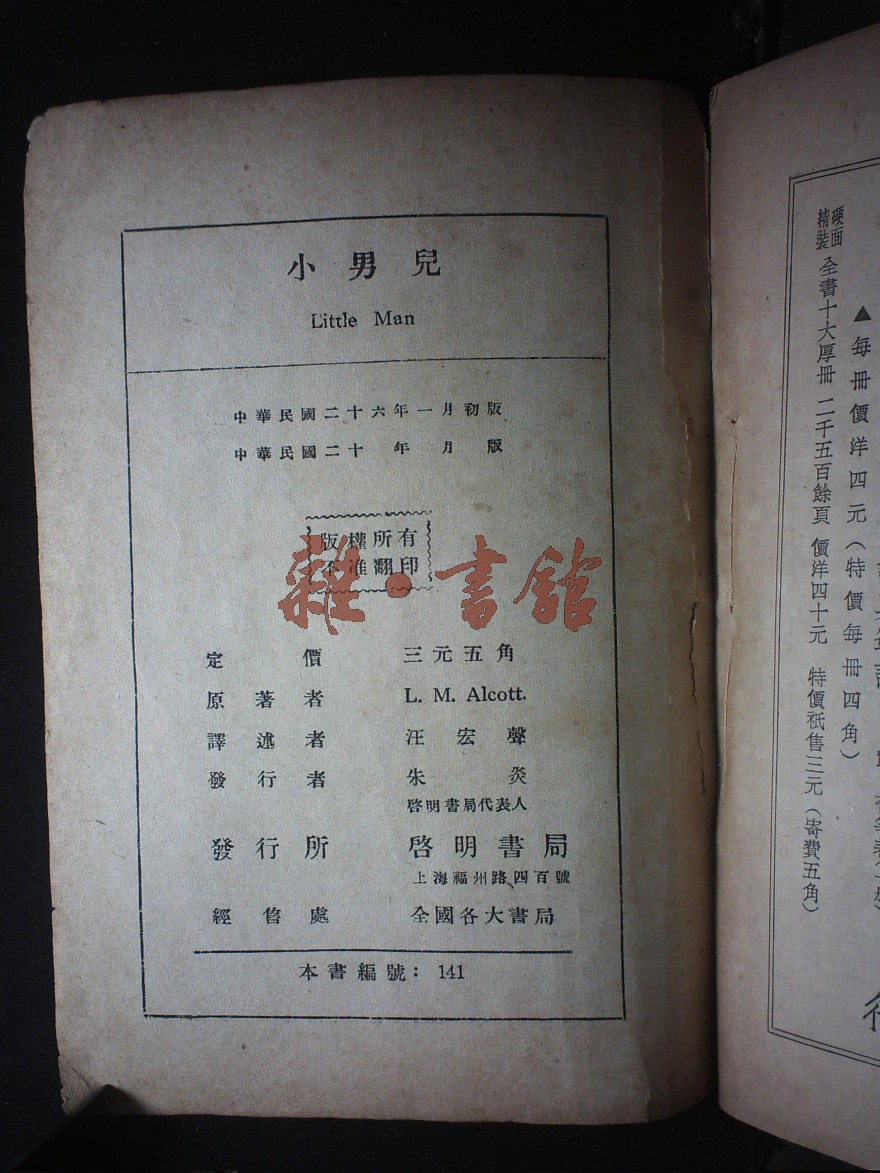 小男兒
Little Man
中華民國二十六年一月初版
中華民國二十 年 月 版
版權所有
不准翻印
雜·書館
定價 三元五角
原著者 L. M. Alcott.
譯述者 汪宏聲
發行者 朱炎
啓明書局代表人
發行所 啓明書局
上海福州路四百號
經售處 全國各大書局
本書編號：141
▲每冊價洋四元（特價每冊四角）
硬面精裝 全書十大厚冊 二千五百餘頁 價洋四十元 特價祇售三元（寄費五角）